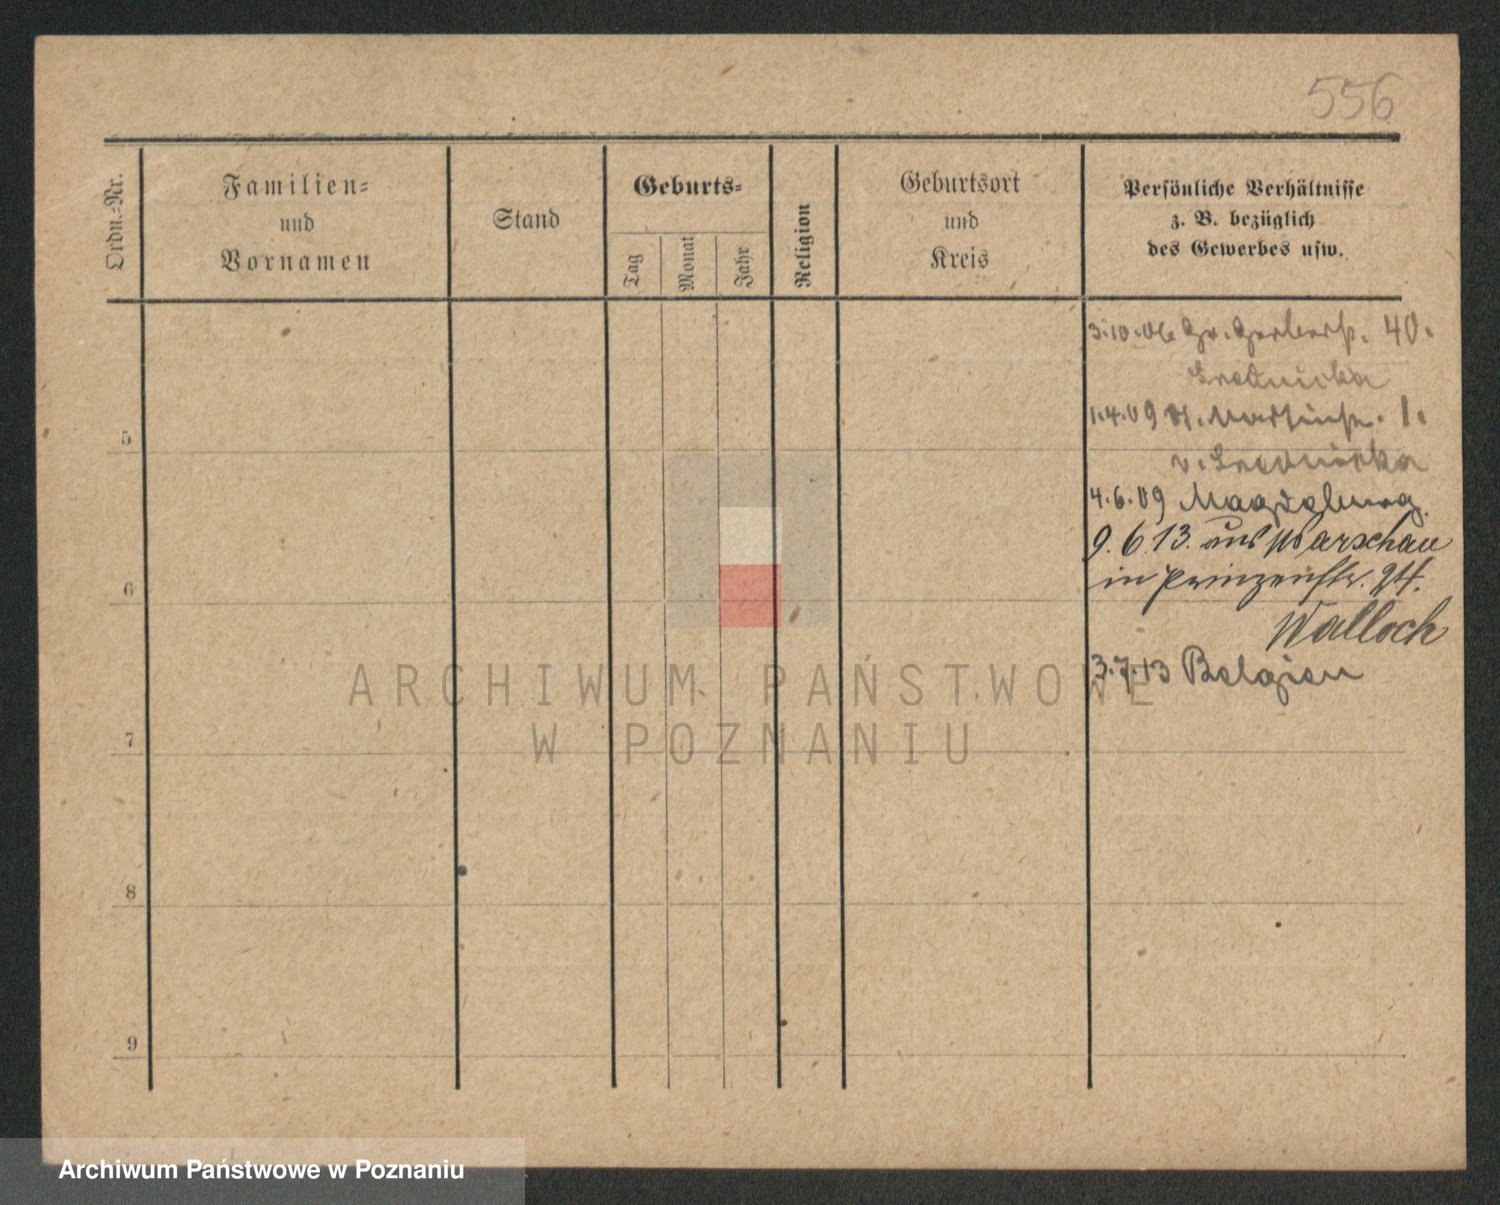 556
Ordn.-Nr.
Familien-
und
Vornamen
Stand
Geburts-
Tag
Monat
Jahr
Religion
Geburtsort
und
Kreis
Persönliche Verhältnisse
z. B. bezüglich
des Gewerbes usw.
3.10.06 Gr. Gerberst. 40.
Srednicka
1.4.09 St. Martinst. 1.
v. Srednicka
4.6.09 Magdeburg.
9.6.13. aus Warschau
in Prinzenstr.
Walloch
3.7.13 Belgien
5
6
7
8
9
ARCHIWUM PAŃSTWOWE
W POZNANIU
Archiwum Państwowe w Poznaniu